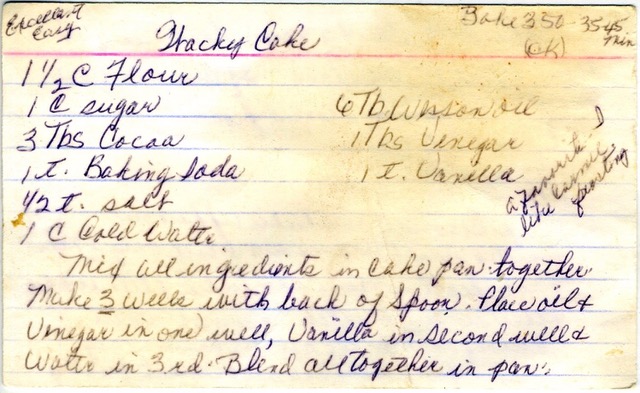 Excellent
Easy
Bake 350 - 35-45
min
(OK)
Wacky Cake
1 1/2 C Flour
1 C sugar
6 Tb Wesson oil
3 Tbs Cocoa
1 Tbs Vinegar
1 t. Baking Soda
1 t. Vanilla
1/2 t. salt
1 C Cold Water
a favorite
like
frosting
Mix all ingredients in cake pan together
Make 3 wells with back of spoon. Place oil &
Vinegar in one well, Vanilla in second well &
Water in 3rd. Blend all together in pan.